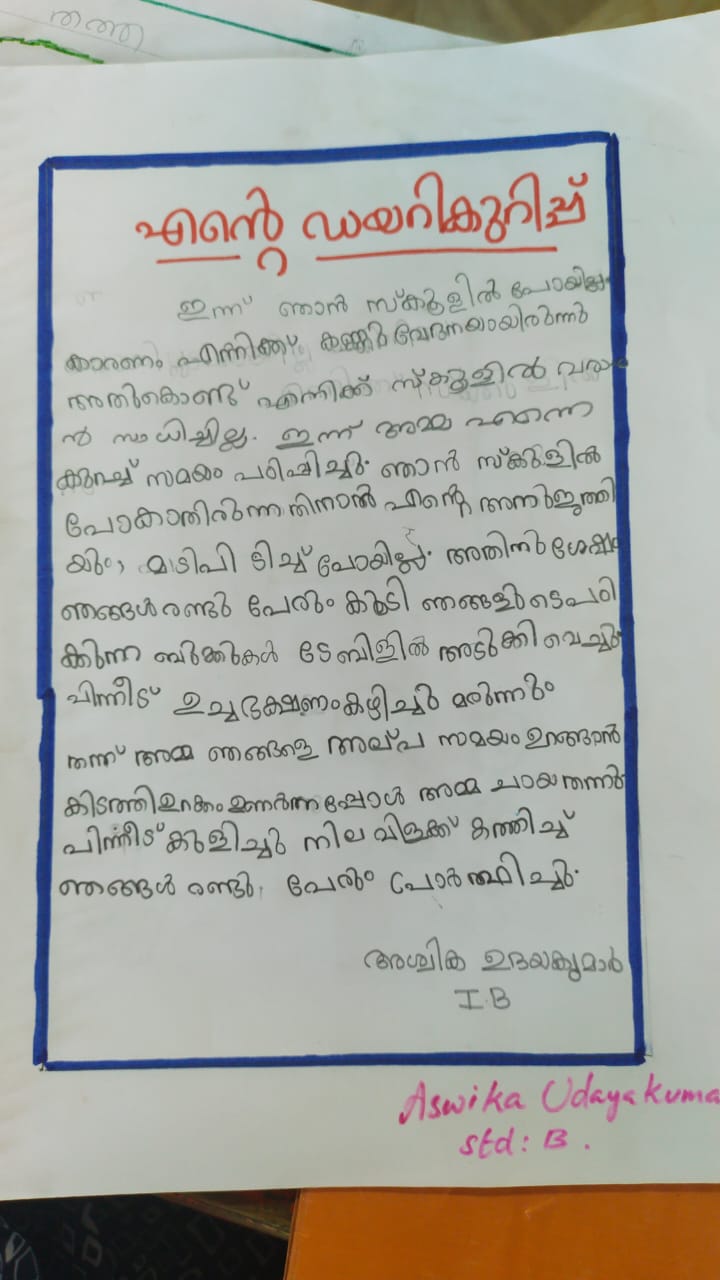 തത്ത
എന്റെ ഡയറികുറിപ്പ്
ഇന്ന് ഞാൻ സ്കൂളിൽ പോയില്ല.
കാരണം എനിക്ക് കണ്ണു വേദനയായിരുന്നു
അതുകൊണ്ട് എനിക്ക് സ്കൂളിൽ വരാ
ൻ സാധിച്ചില്ല. ഇന്ന് അമ്മ എന്നെ
കുറച്ച് സമയം പഠിപ്പിച്ചു. ഞാൻ സ്കൂളിൽ
പോകാതിരുന്നതിനാൽ എന്റെ അനുജത്തി
യും, മടിപിടിച്ച് പോയില്ല. അതിനുശേഷം
ഞങ്ങൾ രണ്ടു പേരും കൂടി ഞങ്ങളുടെ പഠി
ക്കുന്ന ബുക്കുകൾ ടേബിളിൽ അടുക്കി വെച്ചു.
പിന്നീട് ഉച്ചഭക്ഷണം കഴിച്ചു മരുന്നും
തന്ന് അമ്മ ഞങ്ങളെ അല്പ സമയം ഉറങ്ങാൻ
കിടത്തി ഉറക്കം ഉണർന്നപ്പോൾ അമ്മ ചായ തന്നു.
പിന്നീട് കുളിച്ചു നില വിളക്ക് കത്തിച്ച്
ഞങ്ങൾ രണ്ടു പേരും പ്രാർത്ഥിച്ചു.
അശ്വിക ഉദയകുമാർ
I.B
Aswika Udayakuma
std: B.